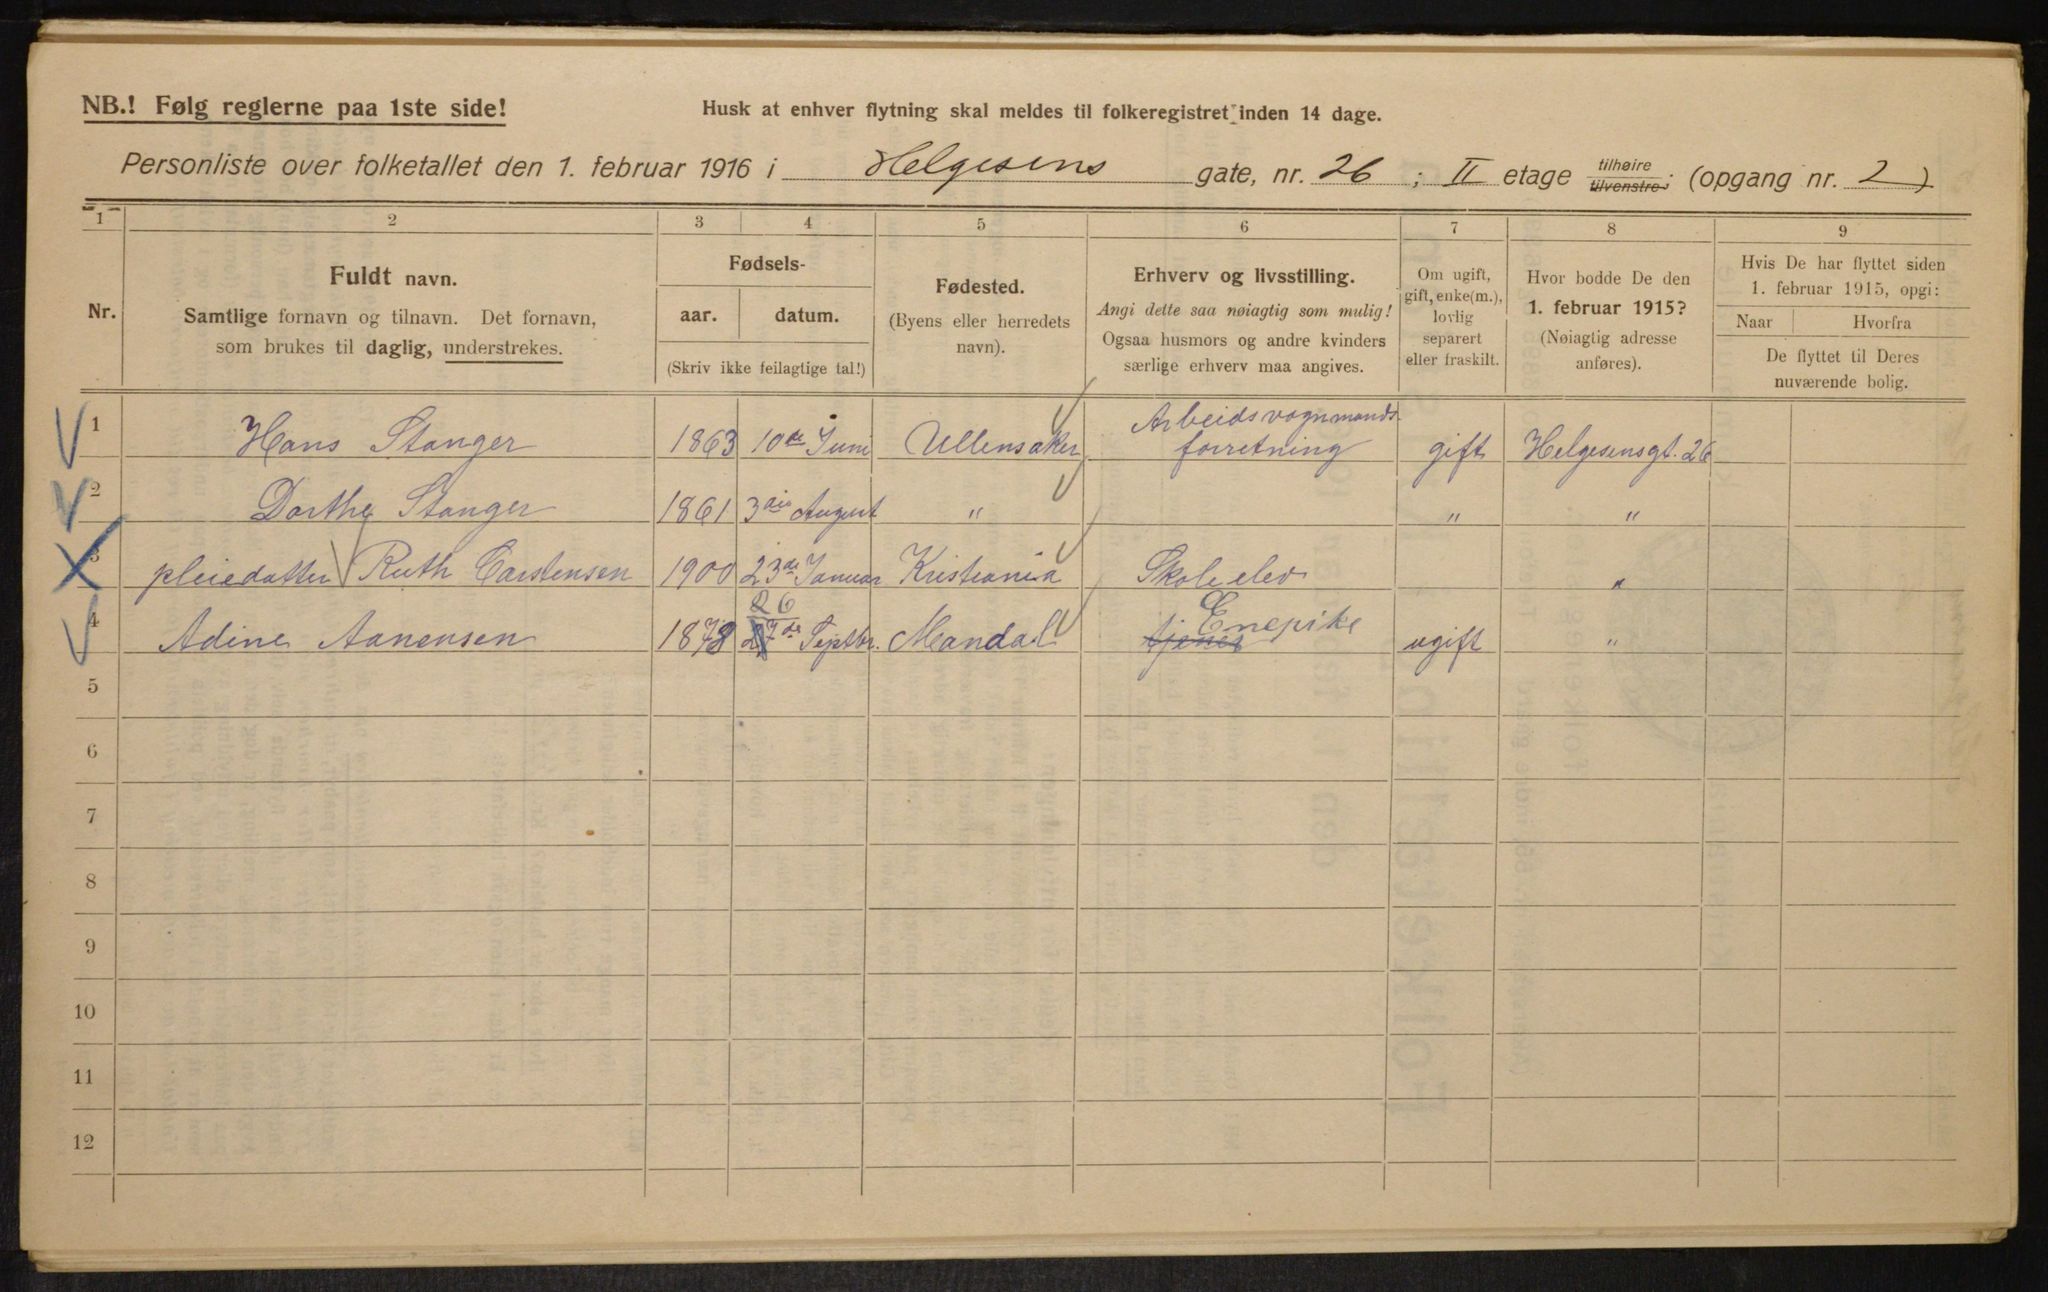 NB.! Følg reglerne paa 1ste side!
Husk at enhver flytning skal meldes til folkeregistret inden 14 dage.
Personliste over folketallet den 1. februar 1916 i Helgesens gate, nr. 26 ; II etage tilhøire tilvenstre; (opgang nr. 2)
1 2 3 4 5 6 7 8 9
Nr.
Fuldt navn.
Samtlige fornavn og tilnavn. Det fornavn,
som brukes til daglig, understrekes.
Fødsels-
aar. datum.
(Skriv ikke feilagtige tal!)
Fødested.
(Byens eller herredets
navn).
Erhverv og livsstilling.
Angi dette saa nøiagtig som mulig!
Ogsaa husmors og andre kvinders
særlige erhverv maa angives.
Om ugift,
gift, enke(m.),
lovlig
separert
eller fraskilt.
Hvor bodde De den
1. februar 1915?
(Nøiagtig adresse
anføres).
Hvis De har flyttet siden
1. februar 1915, opgi:
Naar Hvorfra
De flyttet til Deres
nuværende bolig.
Arbeidsvognmands
1 Hans Stanger 1863 10de Juni Ullensaker forretning gift Helgesensgt. 26
2 Dorthe Stanger 1861 3die August " " "
3 pleiedatter Ruth Carstensen 1900 23de Januar Kristiania Skoleelev "
26 Enepike
4 Adine Aanensen 1878 27de Septbr. Mandal tjener ugift "
5
6
7
8
9
10
11
12